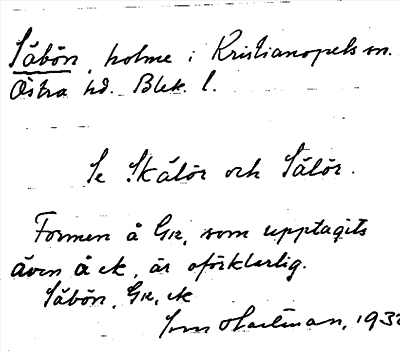 Såbön, holme i Kristianopels sn.
Östra hd. Blek. l.
Se Skålör och Sålör.
Formen å GK, som upptagits
även å ek, är oförklarlig.
Såbön, GK, ek
Hartman, 193